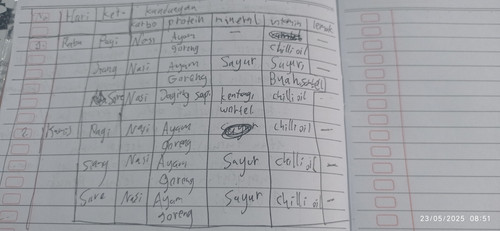 No Hari Ket. kandungan
karbo protein mineral vitamin lemak
1) Rabu Pagi Nasi Ayam — —
goreng chilli oil
Siang Nasi Ayam Sayur Sayur, —
Goreng Buah
Sore Nasi Daging sapi kentang, chilli oil —
wortel
2 Kamis Pagi Nasi Ayam chilli oil —
Goreng
Siang Nasi Ayam Sayur chilli oil —
Goreng
Sore Nasi Ayam Sayur chilli oil —
goreng
23/05/2025 08:51